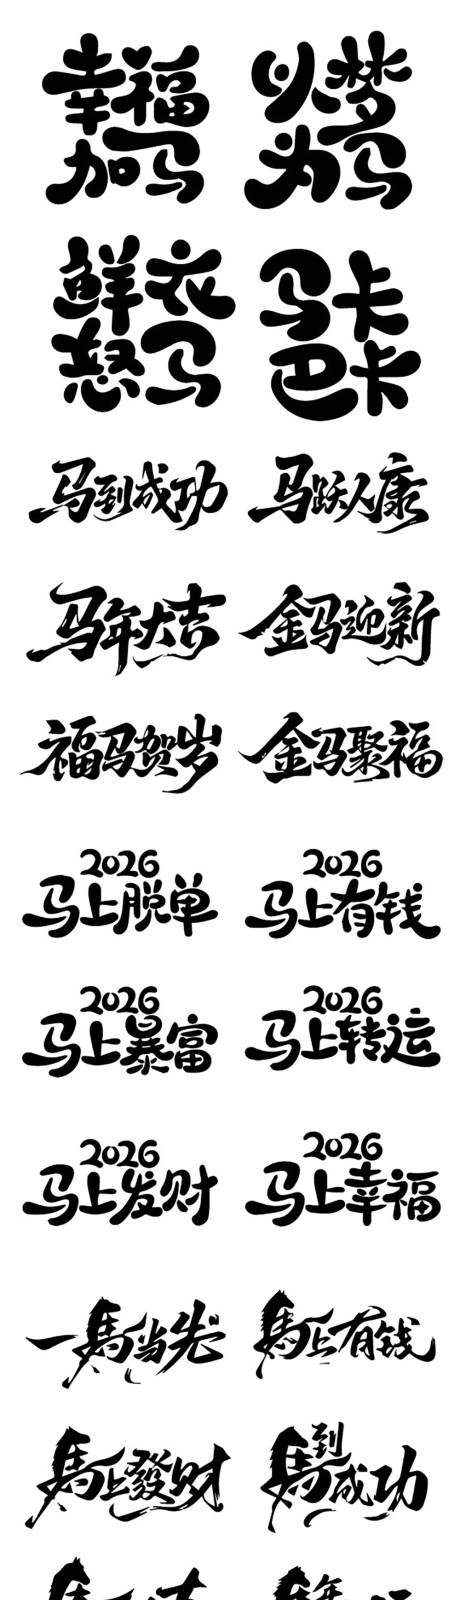 幸福
加马
以梦
为马
鲜衣
怒马
马卡
巴卡
马到成功
马跃人康
马年大吉
金马迎新
福马贺岁
金马聚福
2026
马上脱单
2026
马上有钱
2026
马上暴富
2026
马上转运
2026
马上发财
2026
马上幸福
一馬当先
馬上有钱
馬上發财
馬到成功